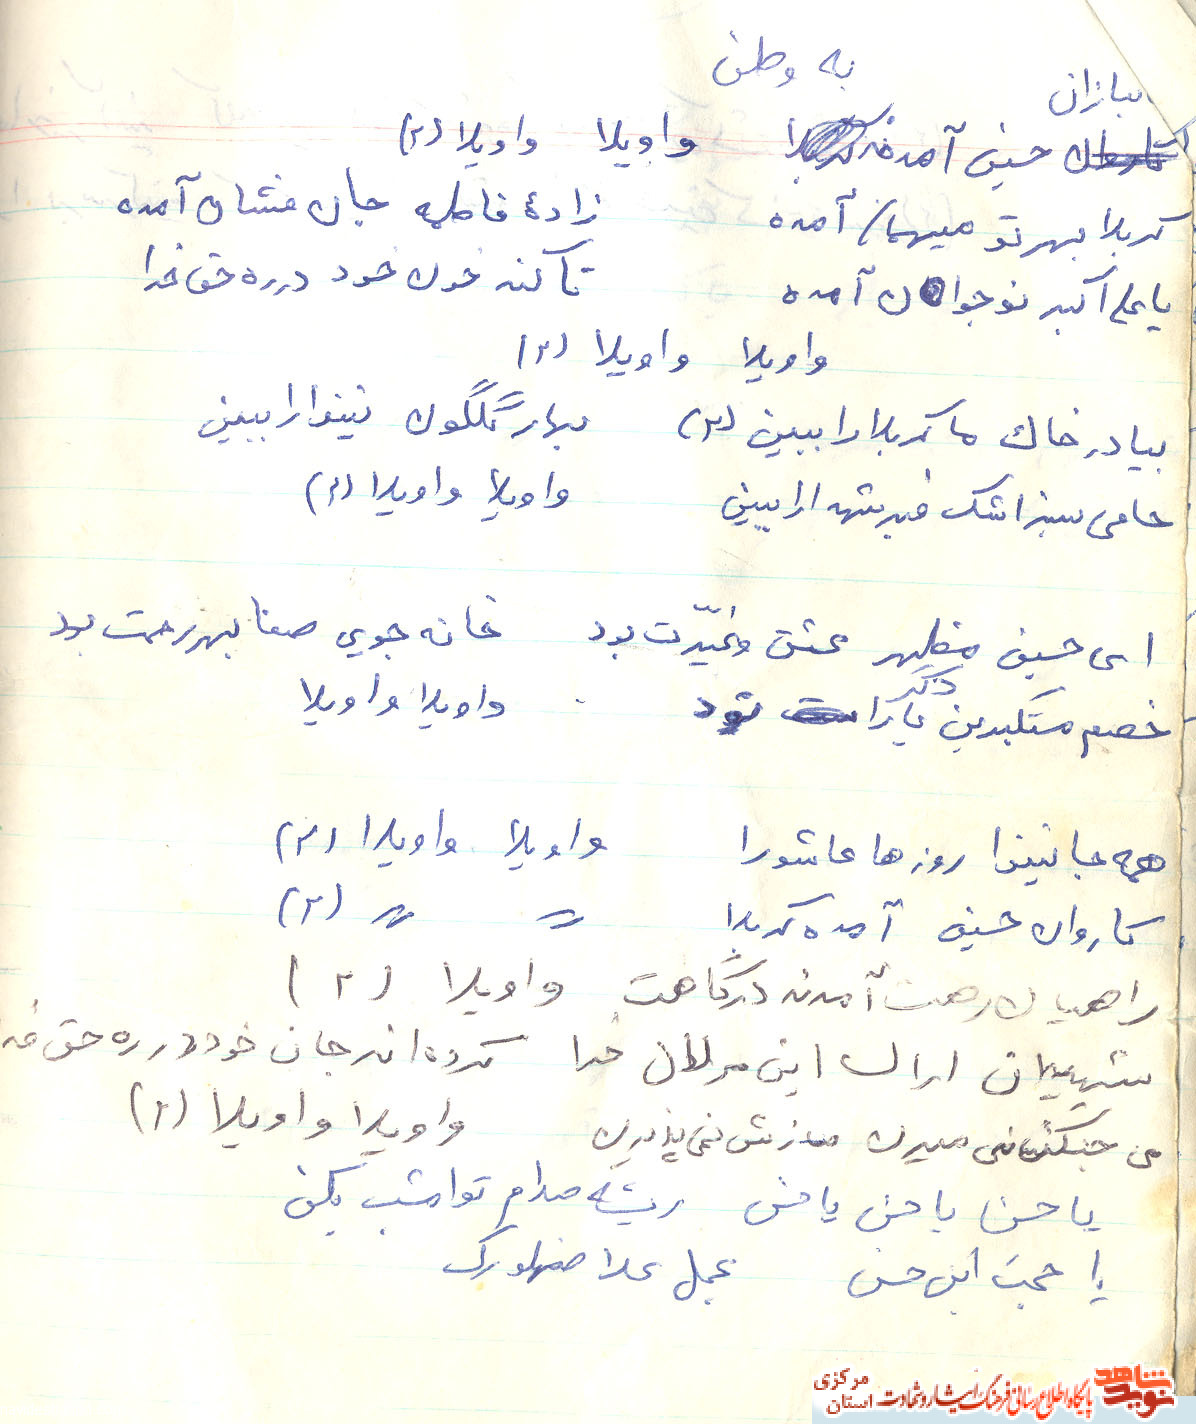 به وطن
جانبازان
کاروان حسین آمده کربلا واویلا واویلا (۲)
کربلا بهر تو میهمان آمده زادهٔ فاطمه جان فشان آمده
یا علی اکبر نوجوان آمده تا کند خون خود در ره حق فدا
واویلا واویلا (۲)
بیا در خاک ما کربلا را ببین (۲) بهار گلگون نینوا را ببین
حامی سبز اشک شهدا را ببین واویلا واویلا (۲)
ای حسین مظهر عشق و غیرت بود خانه جوی صفا بهر رحمت بود
ذکر
خصم مستکبرین واویلا واویلا
همه جا نینوا روزها عاشورا واویلا واویلا (۲)
کاروان حسین آمده کربلا 〃 〃 (۲)
راهیان رهت آمدند درگاهت واویلا (۲)
شهیدان اراک این مردان خدا کرده اند جان خود در ره حق فدا
می جنگند می میرند سازش نمی پذیرند واویلا واویلا (۲)
یا حسن یا حسن یا حسن ریشه صدام تو امشب بکن
یا حجت ابن حسن عجل علا ظهورک
نوید شاهد
پایگاه اطلاع رسانی فرهنگ ایثار و شهادت
مرکزی
استان